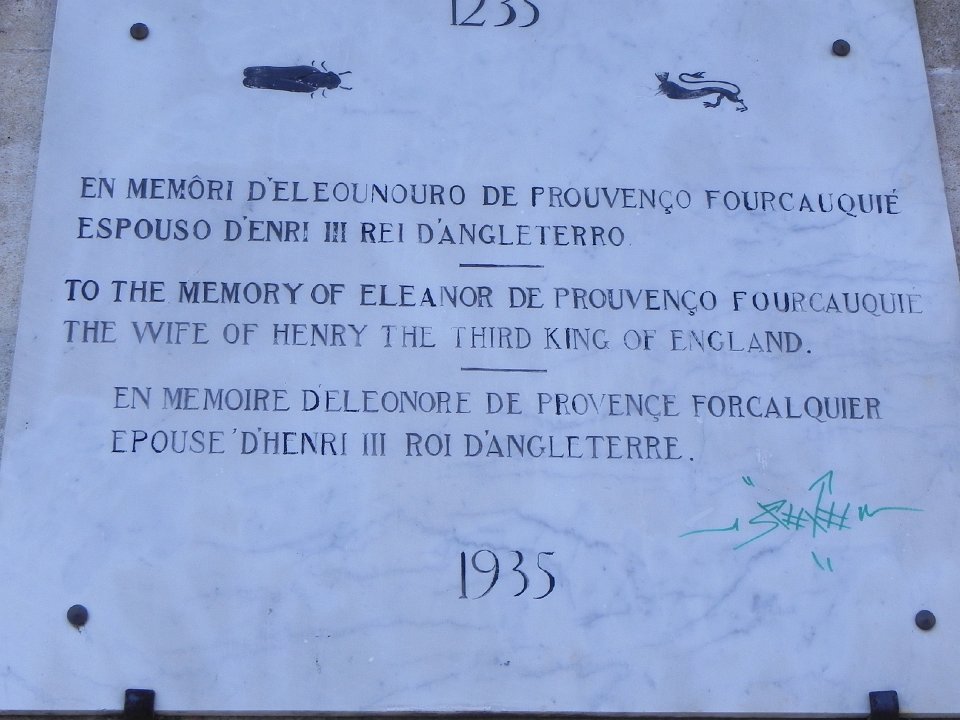 1235
EN MEMÔRI D'ELEOUNOURO DE PROUVENÇO FOURCAUQUIÉ
ESPOUSO D'ENRI III REI D'ANGLETERRO.
TO THE MEMORY OF ELEANOR DE PROUVENÇO FOURCAUQUIÉ
THE WIFE OF HENRY THE THIRD KING OF ENGLAND.
EN MEMOIRE D'ELEONORE DE PROVENÇE FORCALQUIER
EPOUSE D'HENRI III ROI D'ANGLETERRE.
1935